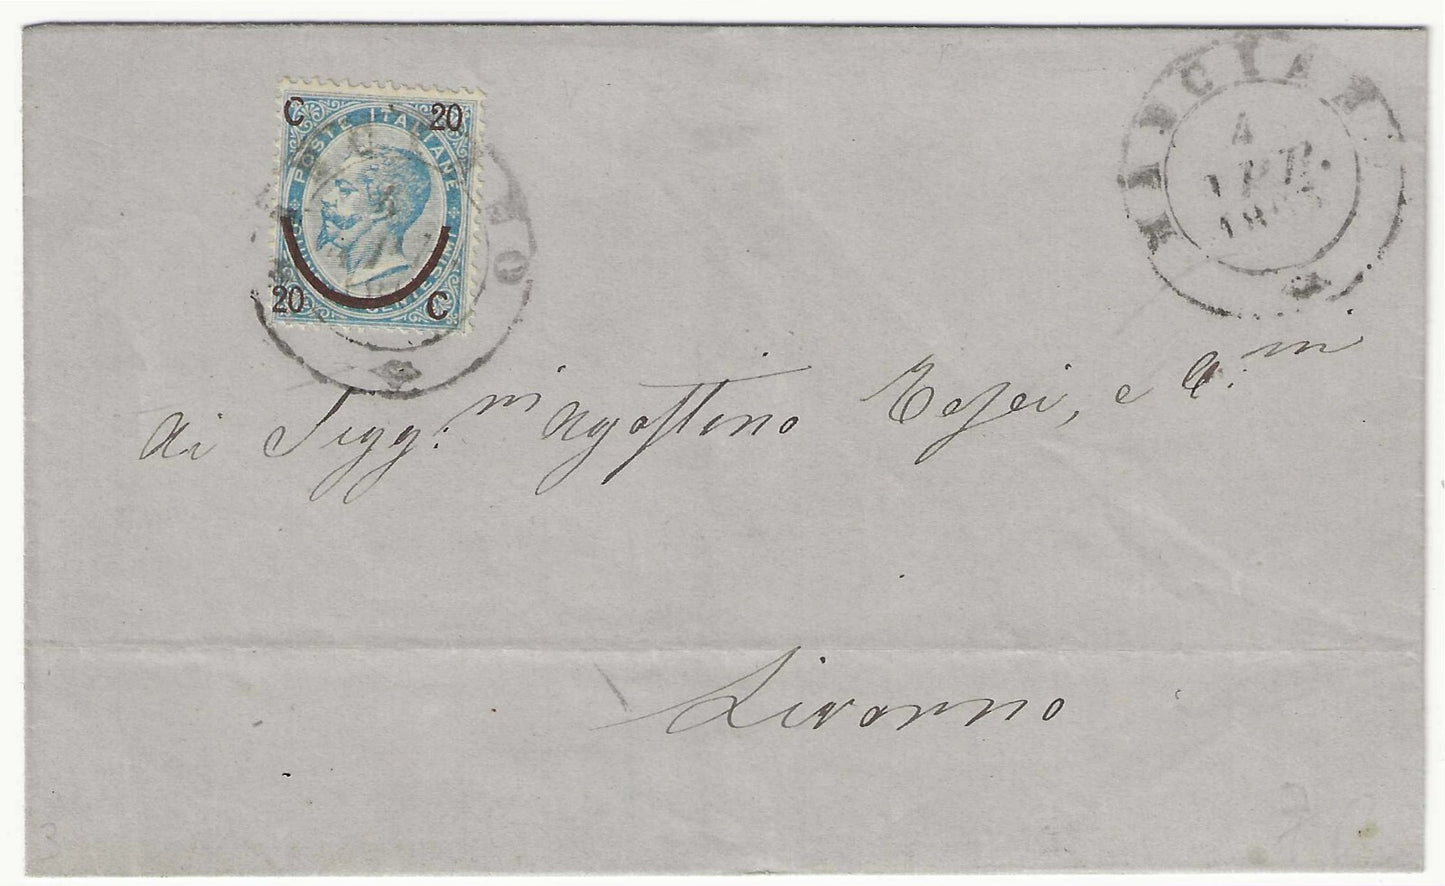 C 20
POSTE ITALIANE
CENTESIMI
20 C
MANCIANO
4
APR.
Ai Sigg.ri Agostino Tesei, e C.ni
Livorno